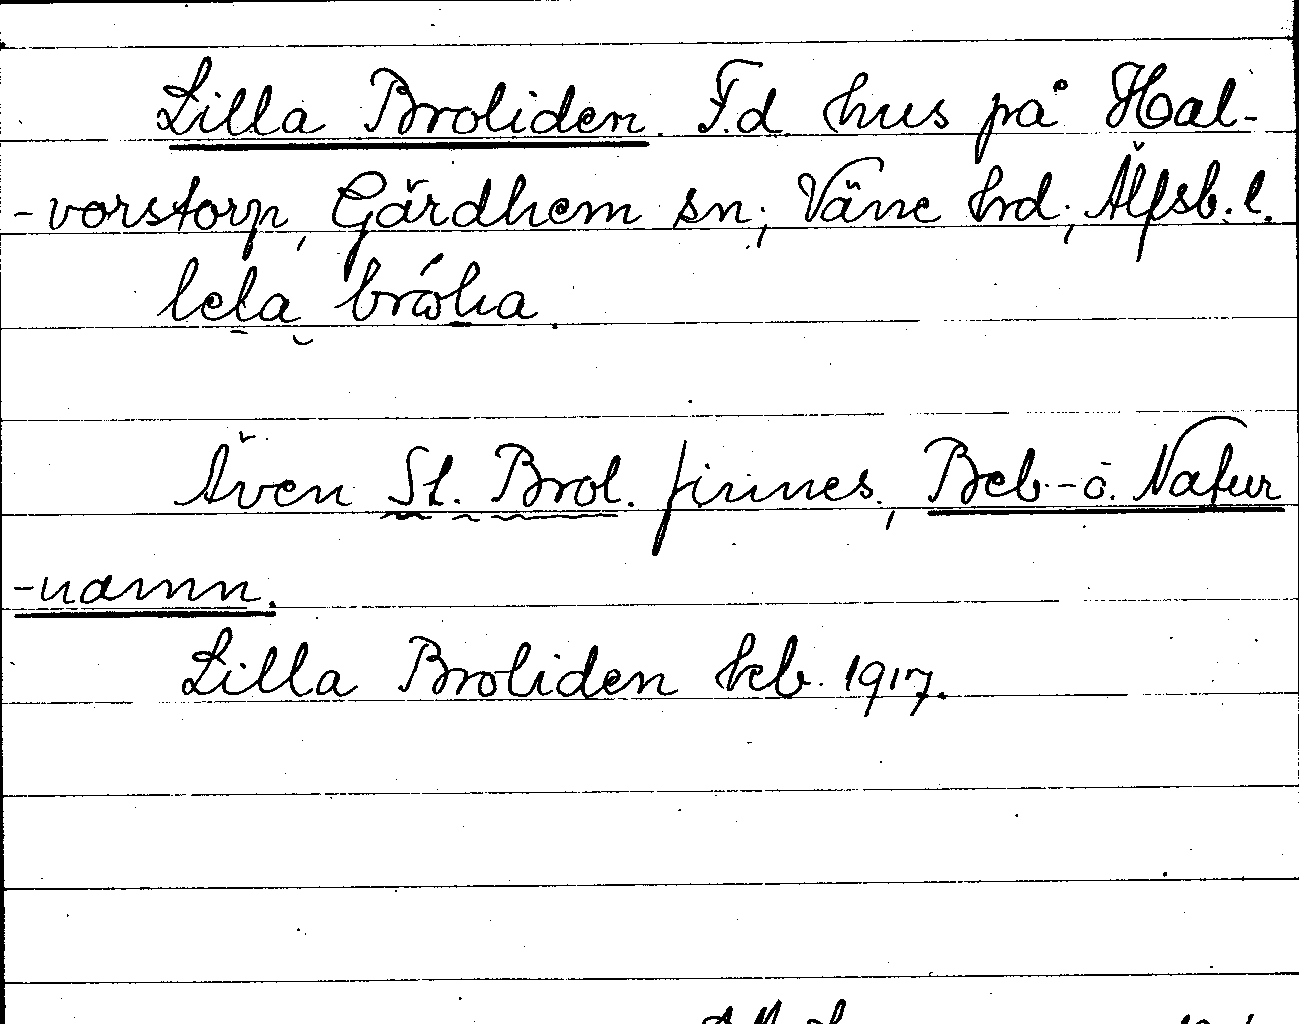 Lilla Broliden. F.d. hus på Hal-
-vorstorp, Gärdhem sn; Väne hrd; Älfsb. l.
Även St. Brol. finnes, Beb.- o. Natur
-namn.
Lilla Broliden keb. 1917.